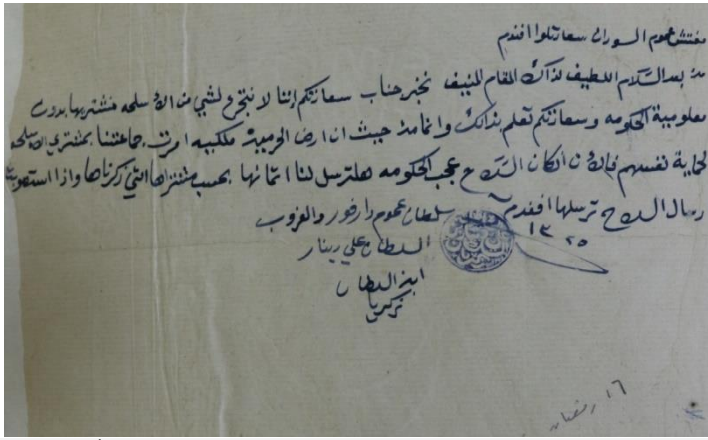 مفتش عموم السودان سعادتلوا افندم
بعد السلام اللطيف لذاك المقام المنيف نخبر جناب سعادتكم اننا لا نتجرئ لشيئ من الاسلحه نشتريها بدون
معلومية الحكومه وسعادتكم تعلم بذالك وانما حيث ان ارض ملكيه امرت جماعتنا بمشترى الاسلحه
لحماية نفسهم فالأن الكان السلاح عجب الحكومه هلترسل لنا اثمانها بحسب مشتراها التي ذكرناها واذا استصوب
رسال السلاح ترسلها افندم
سلطان عموم دارفور والغروب
١٣٢٥
السلطان علي دينار
ابن السلطان
زكريا
١٦ رمضان